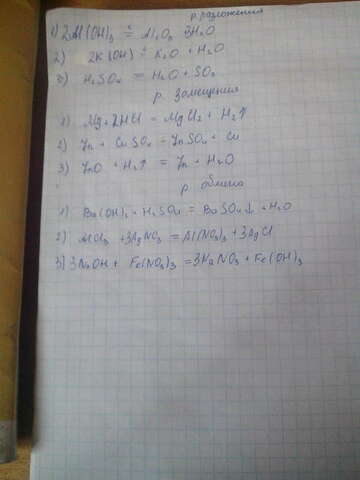 р. разложения
1) 2Al(OH)₃ = Al₂O₃ 3H₂O
2) 2K(OH) = K₂O + H₂O
3) H₂SO₄ = H₂O + SO₃
р. Замещения
1) Mg + 2HCl = MgCl₂ + H₂↑
2) Zn + CuSO₄ = ZnSO₄ + Cu
3) ZnO + H₂↑ = Zn + H₂O
р. обмена
1) Ba(OH)₂ + H₂SO₄ = BaSO₄↓ + H₂O
2) AlCl₃ + 3AgNO₃ = Al(NO₃)₃ + 3AgCl
3) 3NaOH + Fe(NO₃)₃ = 3NaNO₃ + Fe(OH)₃